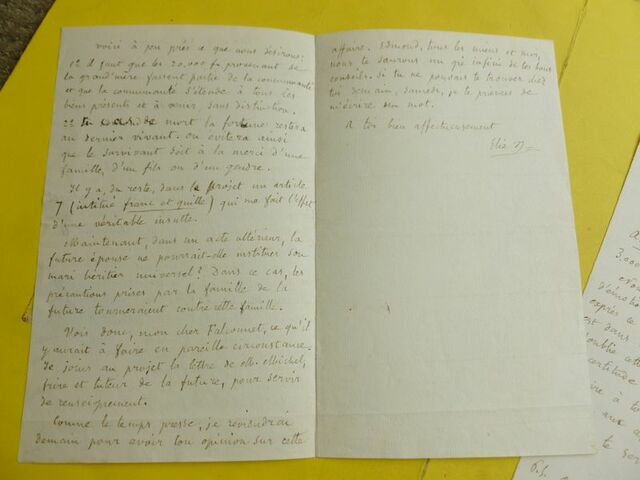 voici à peu près ce que nous désirons:
il faut que les 20.000 f. provenant de
la grand'mère fassent partie de la communauté
et que la communauté s'étende à tous les
biens présents et à venir, sans distinction.
de mort la fortune restera
au dernier vivant. On évitera ainsi
que le survivant soit à la merci d'une
famille, d'un fils ou d'un gendre.
Il y a, du reste, dans le projet un article
7 (intitulé franc et quitte) qui me fait l'effet
d'une véritable insulte.
Maintenant, dans un acte ultérieur, la
future épouse ne pourrait-elle instituer son
mari héritier universel? Dans ce cas, les
précautions prises par la famille de la
future tourneraient contre cette famille.
Vois donc, mon cher Falconnet, ce qu'il
y aurait à faire en pareille circonstance.
Je joins au projet la lettre de M. Michel,
frère et tuteur de la future, pour servir
de renseignement.
Comme le temps presse, je reviendrai
demain pour avoir ton opinion sur cette
affaire. Edmond, tous les miens et moi,
nous te saurons un gré infini de tes bons
conseils. Si tu ne pouvais te trouver chez
toi demain, samedi, je te prierais de
m'écrire un mot.
A toi bien affectueusement
Elie
3.000
exprès
est dans
certitude
P.S.